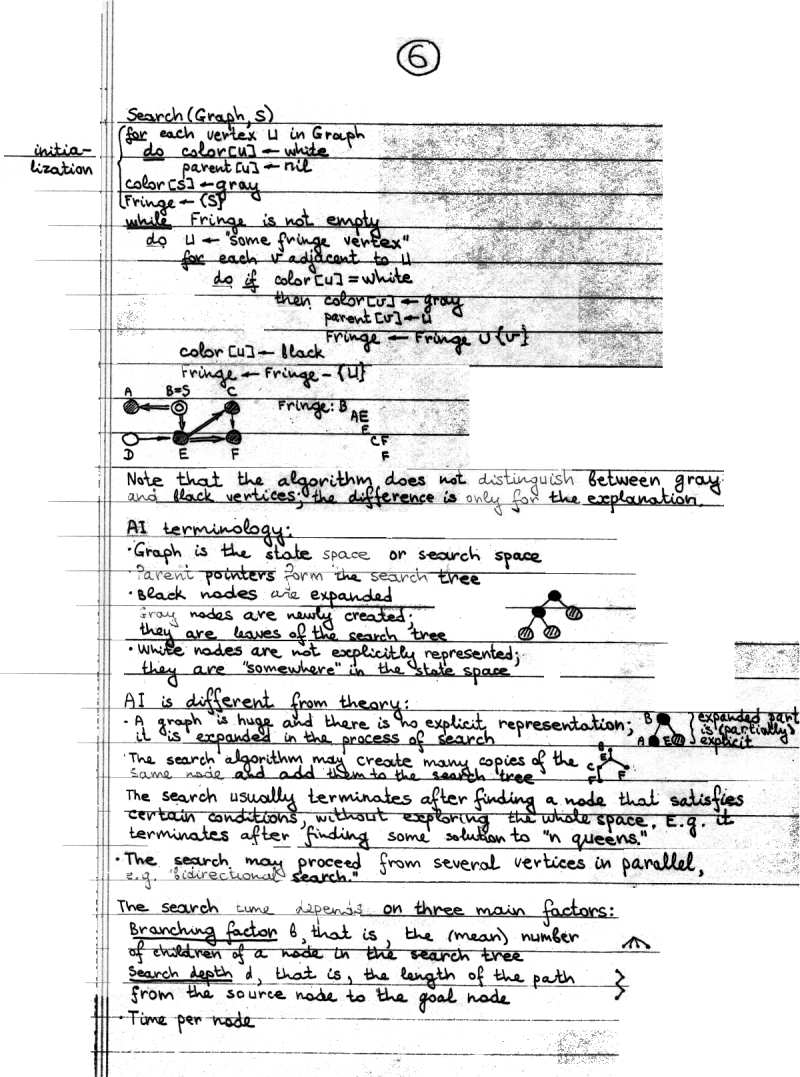 6
Search(Graph, S)
for each vertex u in Graph
initia-
lization
do color[u] ← white
parent[u] ← nil
color[S] ← gray
Fringe ← {S}
while Fringe is not empty
do u ← "some fringe vertex"
for each v adjacent to u
do if color[u] = white
then color[v] ← gray
parent[v] ← u
Fringe ← Fringe ∪ {v}
color[u] ← black
Fringe ← Fringe - {u}
A B=S C
Fringe: B
AE
E
CF
F
D E F
Note that the algorithm does not distinguish between gray
and black vertices; the difference is only for the explanation.
AI terminology:
· Graph is the state space or search space
· Parent pointers form the search tree
· Black nodes are expanded
Gray nodes are newly created;
they are leaves of the search tree
· White nodes are not explicitly represented;
they are "somewhere" in the state space
AI is different from theory:
· A graph is huge and there is no explicit representation;
it is expanded in the process of search
B
A E
expanded part
is (partially)
explicit
· The search algorithm may create many copies of the
same node and add them to the search tree
B
E
C F
F
The search usually terminates after finding a node that satisfies
certain conditions, without exploring the whole space. E.g. it
terminates after finding some solution to "n queens."
· The search may proceed from several vertices in parallel,
e.g. "bidirectional search."
The search time depends on three main factors:
Branching factor b, that is, the (mean) number
of children of a node in the search tree
Search depth d, that is, the length of the path
from the source node to the goal node
· Time per node